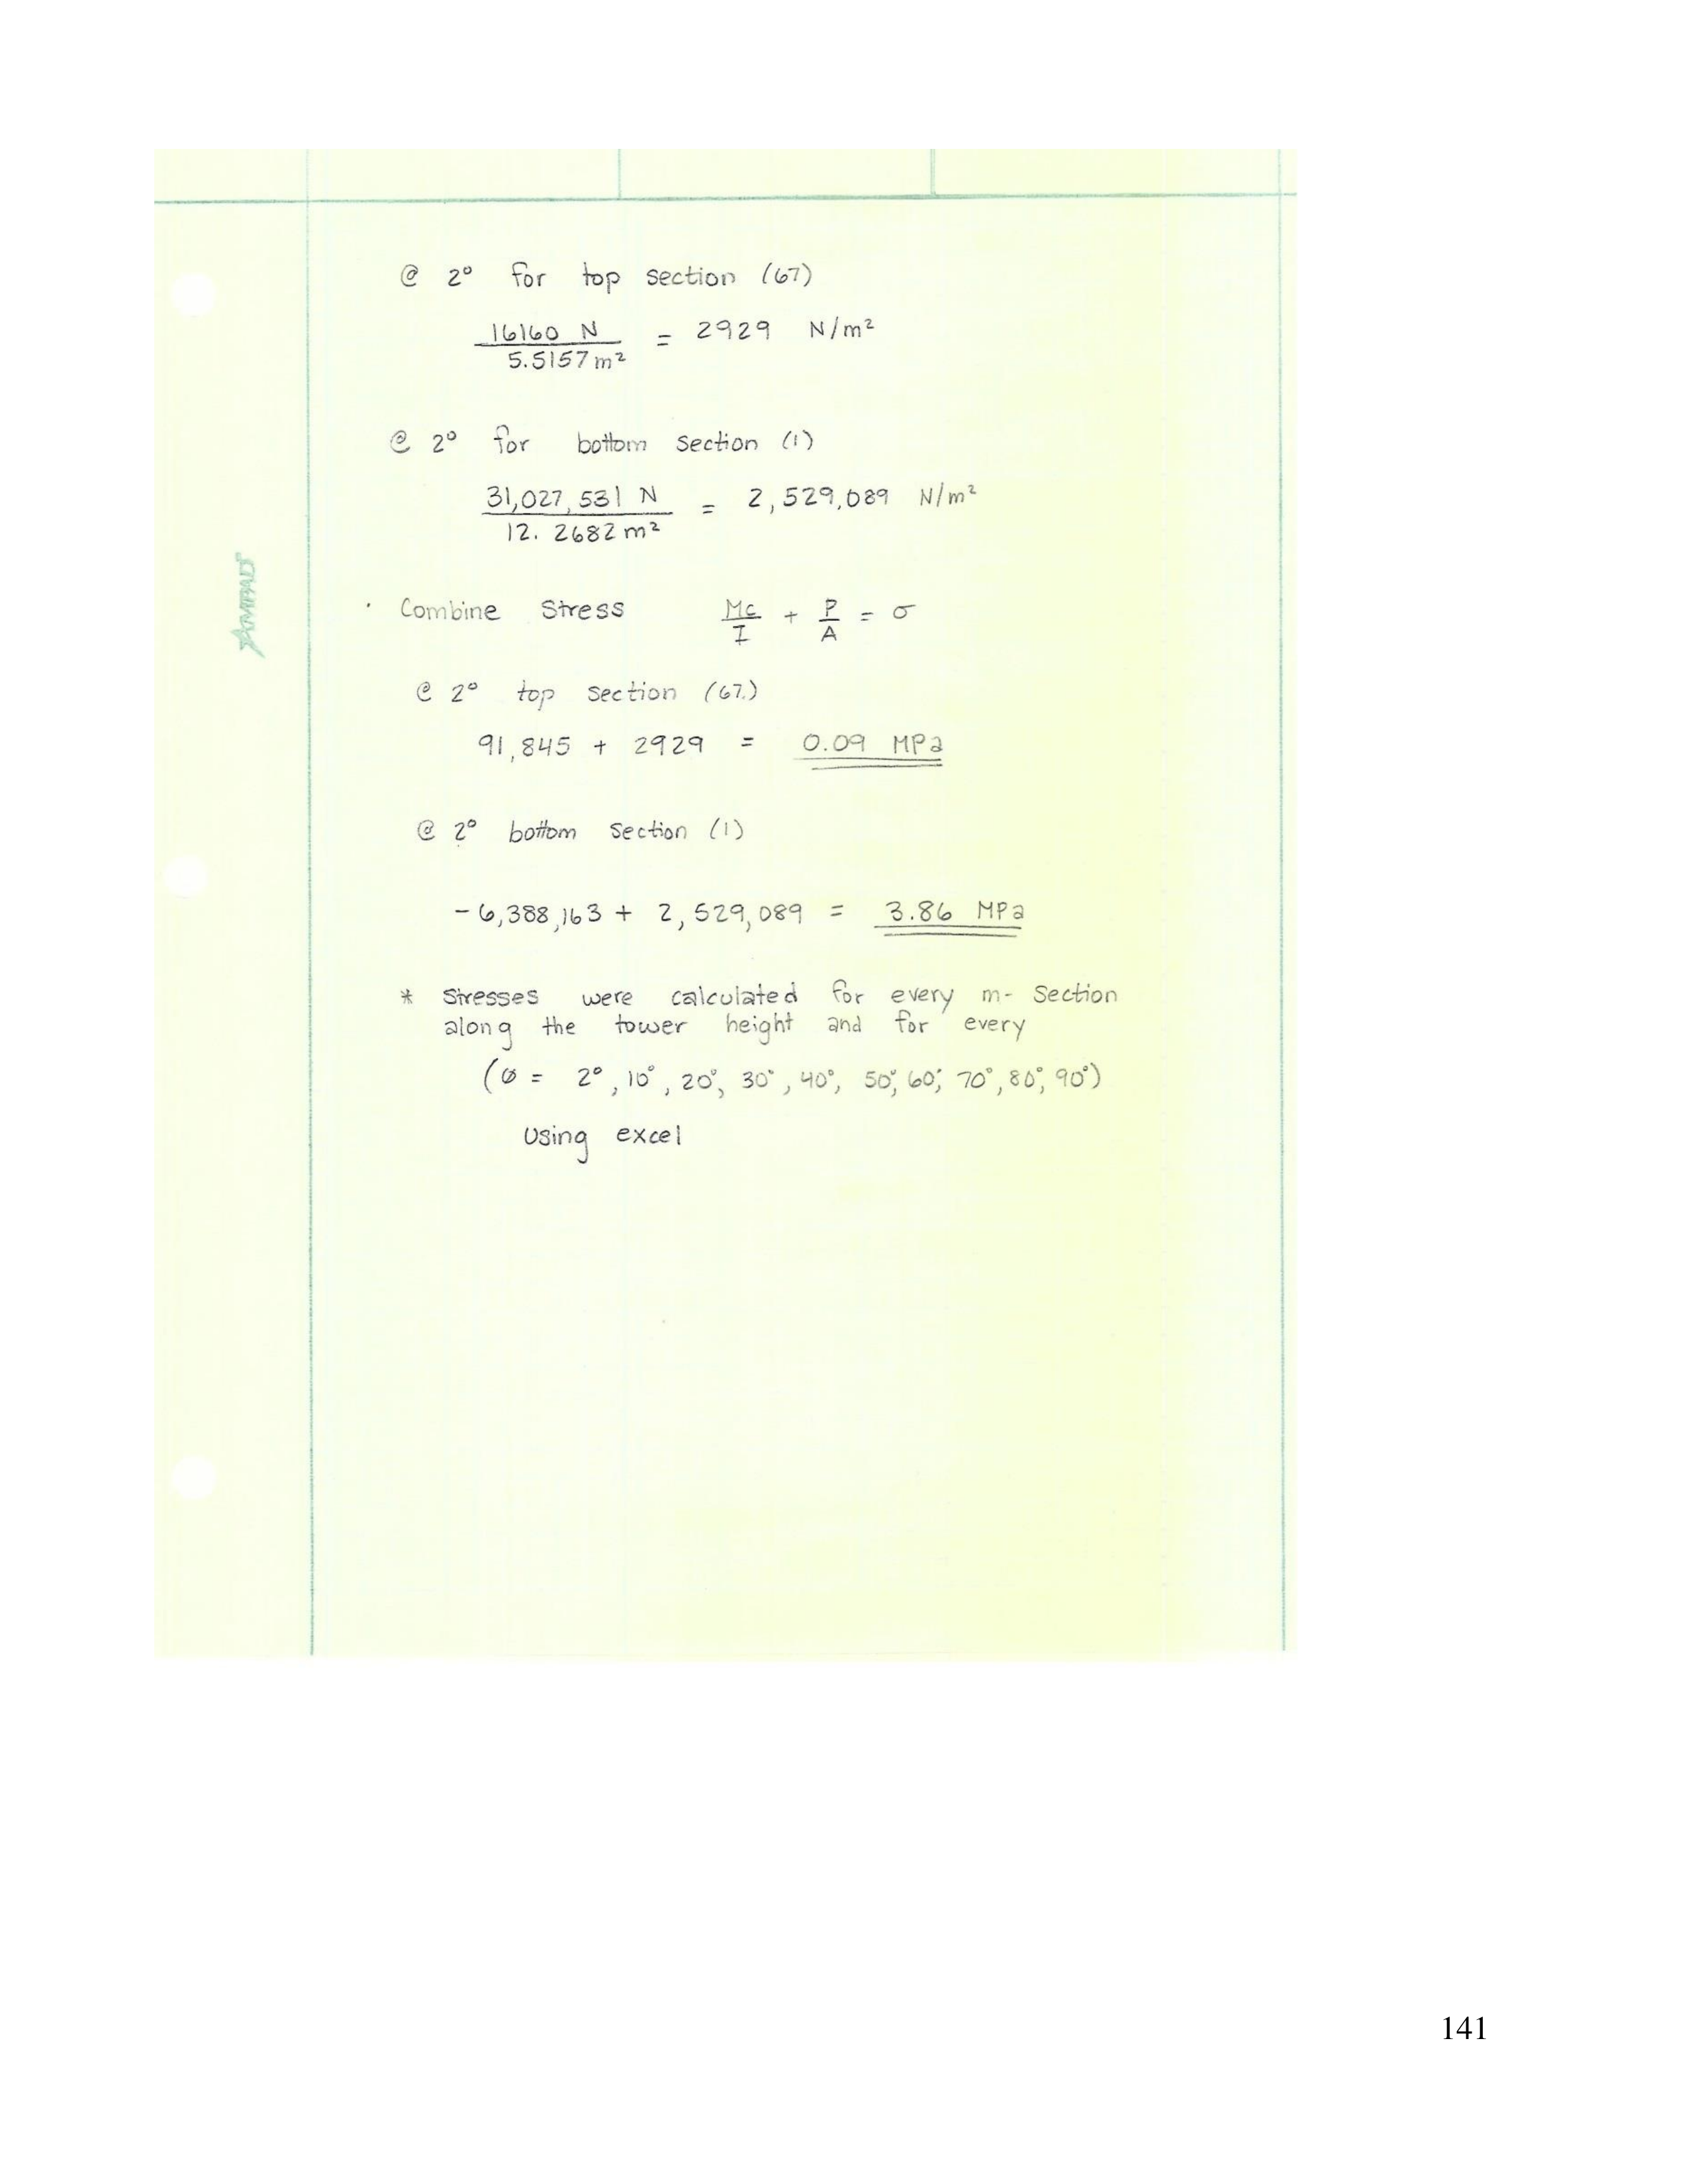 @ 2° for top section (67)
16160 N / 5.5157 m² = 2929 N/m²
@ 2° for bottom section (1)
31,027,531 N / 12.2682 m² = 2,529,089 N/m²
AMPAD
· Combine Stress Mc/I + P/A = σ
@ 2° top section (67)
91,845 + 2929 = 0.09 MPa
@ 2° bottom section (1)
-6,388,163 + 2,529,089 = 3.86 MPa
* Stresses were calculated for every m- section
along the tower height and for every
(Ø = 2°, 10°, 20°, 30°, 40°, 50°, 60°, 70°, 80°, 90°)
Using excel
141